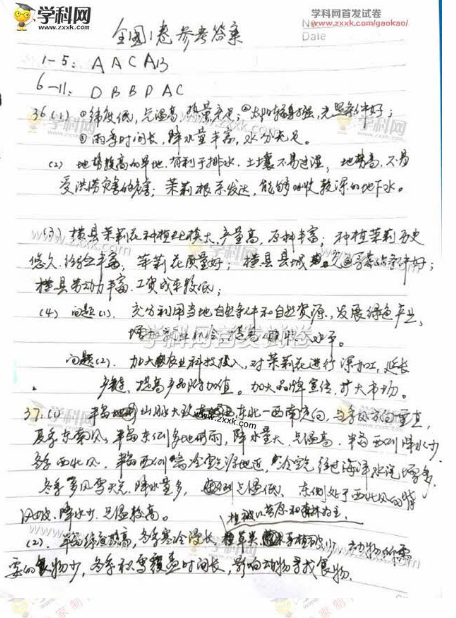 学科网
ZXXK.COM
学科网首发试卷
www.zxxk.com/gaokao/
Date
全国1卷参考答案
1-5: A A C A B
6-11: D B B D A C
36.(1) ①纬度低,气温高,热量充足;光照条件好;
②雨季时间长,降水量丰富,水分充足。
(2) 地势较高的旱地,有利于排水,土壤不易过湿,地势高,不易
受洪涝灾害的危害;茉莉根系发达,能够吸收较深的地下水。
(3) 横县茉莉花种植规模大,产量高,原料丰富;种植茉莉历史
悠久,经验丰富,茉莉花质量好;横县县城交通条件好;
横县劳动力丰富,工资成本较低;
(4) 问题(1). 充分利用当地自然条件和自然资源,发展绿色产业,
学科网首发试卷
问题(2). 加大农业科技投入,对茉莉花进行深加工,延长
产业链,提高产品附加值。加大品牌宣传,扩大市场。
www.zxxk.com/gaokao/
37.(1) 半岛山脉大致东北—西南走向,与季风方向垂直,
夏季东南风,半岛东侧多地形雨,降水量大,气温高,半岛西侧降水少
冬季西北风,半岛西侧离冷空气源地近,冷空气经过海洋水汽增多,
冬季多风雪天,降水量多,气温低,东侧处于西北风的背
风坡,降水少,气温较高。
植被以苔原和森林为主,
(2) 半岛纬度较高,冬季寒冷漫长,动物所需
要的食物少,冬季积雪覆盖时间长,影响动物寻找食物。